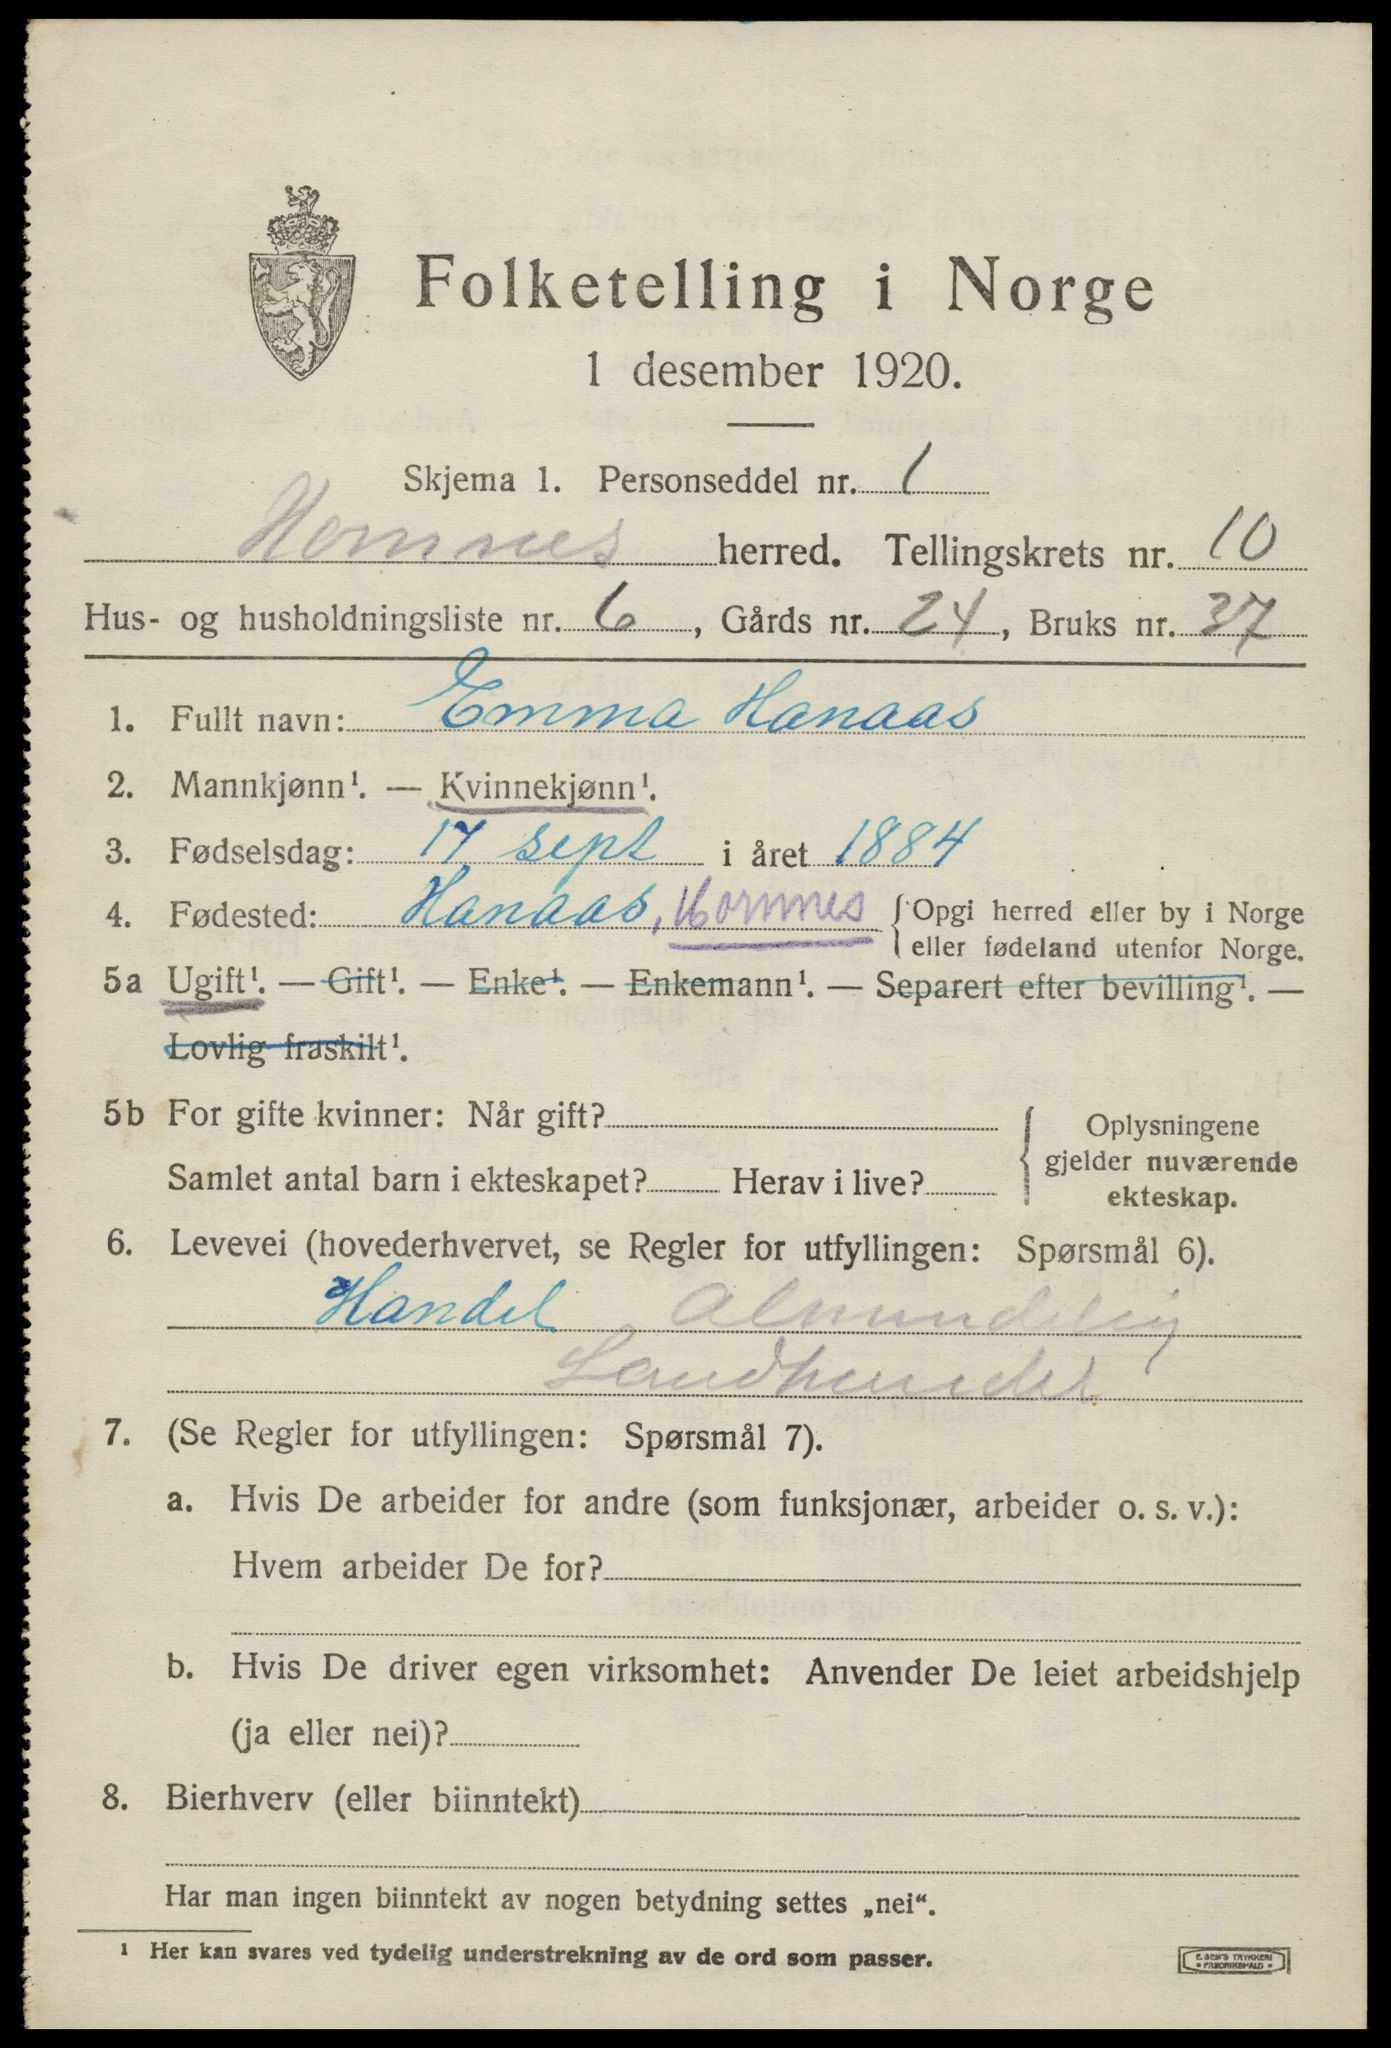 Folketelling i Norge
1 desember 1920.
Skjema 1. Personseddel nr. 1
Hornnes herred. Tellingskrets nr. 10
Hus- og husholdningsliste nr. 6, Gårds nr. 24, Bruks nr. 37
1. Fullt navn: Emma Hanaas
2. Mannkjønn¹. — Kvinnekjønn¹.
3. Fødselsdag: 17 sept i året 1884
4. Fødested: Hanaas, Hornnes {Opgi herred eller by i Norge
eller fødeland utenfor Norge.
5a Ugift¹. — Gift¹. — Enke¹. — Enkemann¹. — Separert efter bevilling¹. —
Lovlig fraskilt¹.
5b For gifte kvinner: Når gift?
Samlet antal barn i ekteskapet? Herav i live?
Oplysningene
gjelder nuværende
ekteskap.
6. Levevei (hovederhvervet, se Regler for utfyllingen: Spørsmål 6).
Handel Almindelig
Landhandel
7. (Se Regler for utfyllingen: Spørsmål 7).
a. Hvis De arbeider for andre (som funksjonær, arbeider o. s. v.):
Hvem arbeider De for?
b. Hvis De driver egen virksomhet: Anvender De leiet arbeidshjelp
(ja eller nei)?
8. Bierhverv (eller biinntekt)
Har man ingen biinntekt av nogen betydning settes „nei“.
¹ Her kan svares ved tydelig understrekning av de ord som passer.
E. SEM'S TRYKKERI
• FREDRIKSHALD •